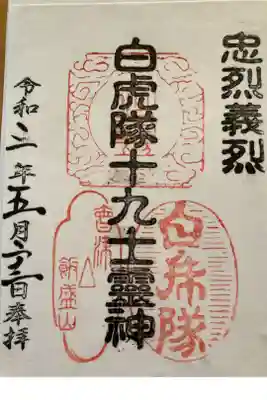 忠烈義烈
白虎隊十九士靈神
白虎隊
會津
飯盛山
令和三年五月 日奉拝